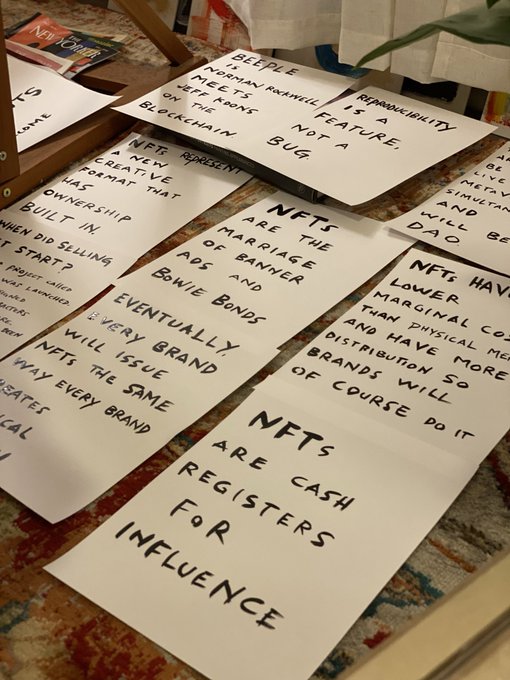 THE
NEW YORKER
BEEPLE
IS
NORMAN ROCKWELL
MEETS
JEFF KOONS
ON THE
BLOCKCHAIN
REPRODUCIBILITY
IS A
FEATURE,
NOT A
BUG
NFTs REPRESENT
A NEW
CREATIVE
FORMAT THAT
HAS
OWNERSHIP
BUILT IN.
WHEN DID SELLING
START?
PROJECT CALLED
WAS LAUNCHED
BEEN
NFTs
ARE THE
MARRIAGE
OF BANNER
ADS AND
BOWIE BONDS
BE
LIVE
AND
WILL BE
DAO
NFTs HAVE
LOWER
MARGINAL
THAN PHYSICAL
AND HAVE MORE
DISTRIBUTION SO
BRANDS WILL
OF COURSE DO IT
EVENTUALLY,
EVERY BRAND
WILL ISSUE
NFTs THE SAME
WAY EVERY BRAND
NFTs
ARE CASH
REGISTERS
FOR
INFLUENCE